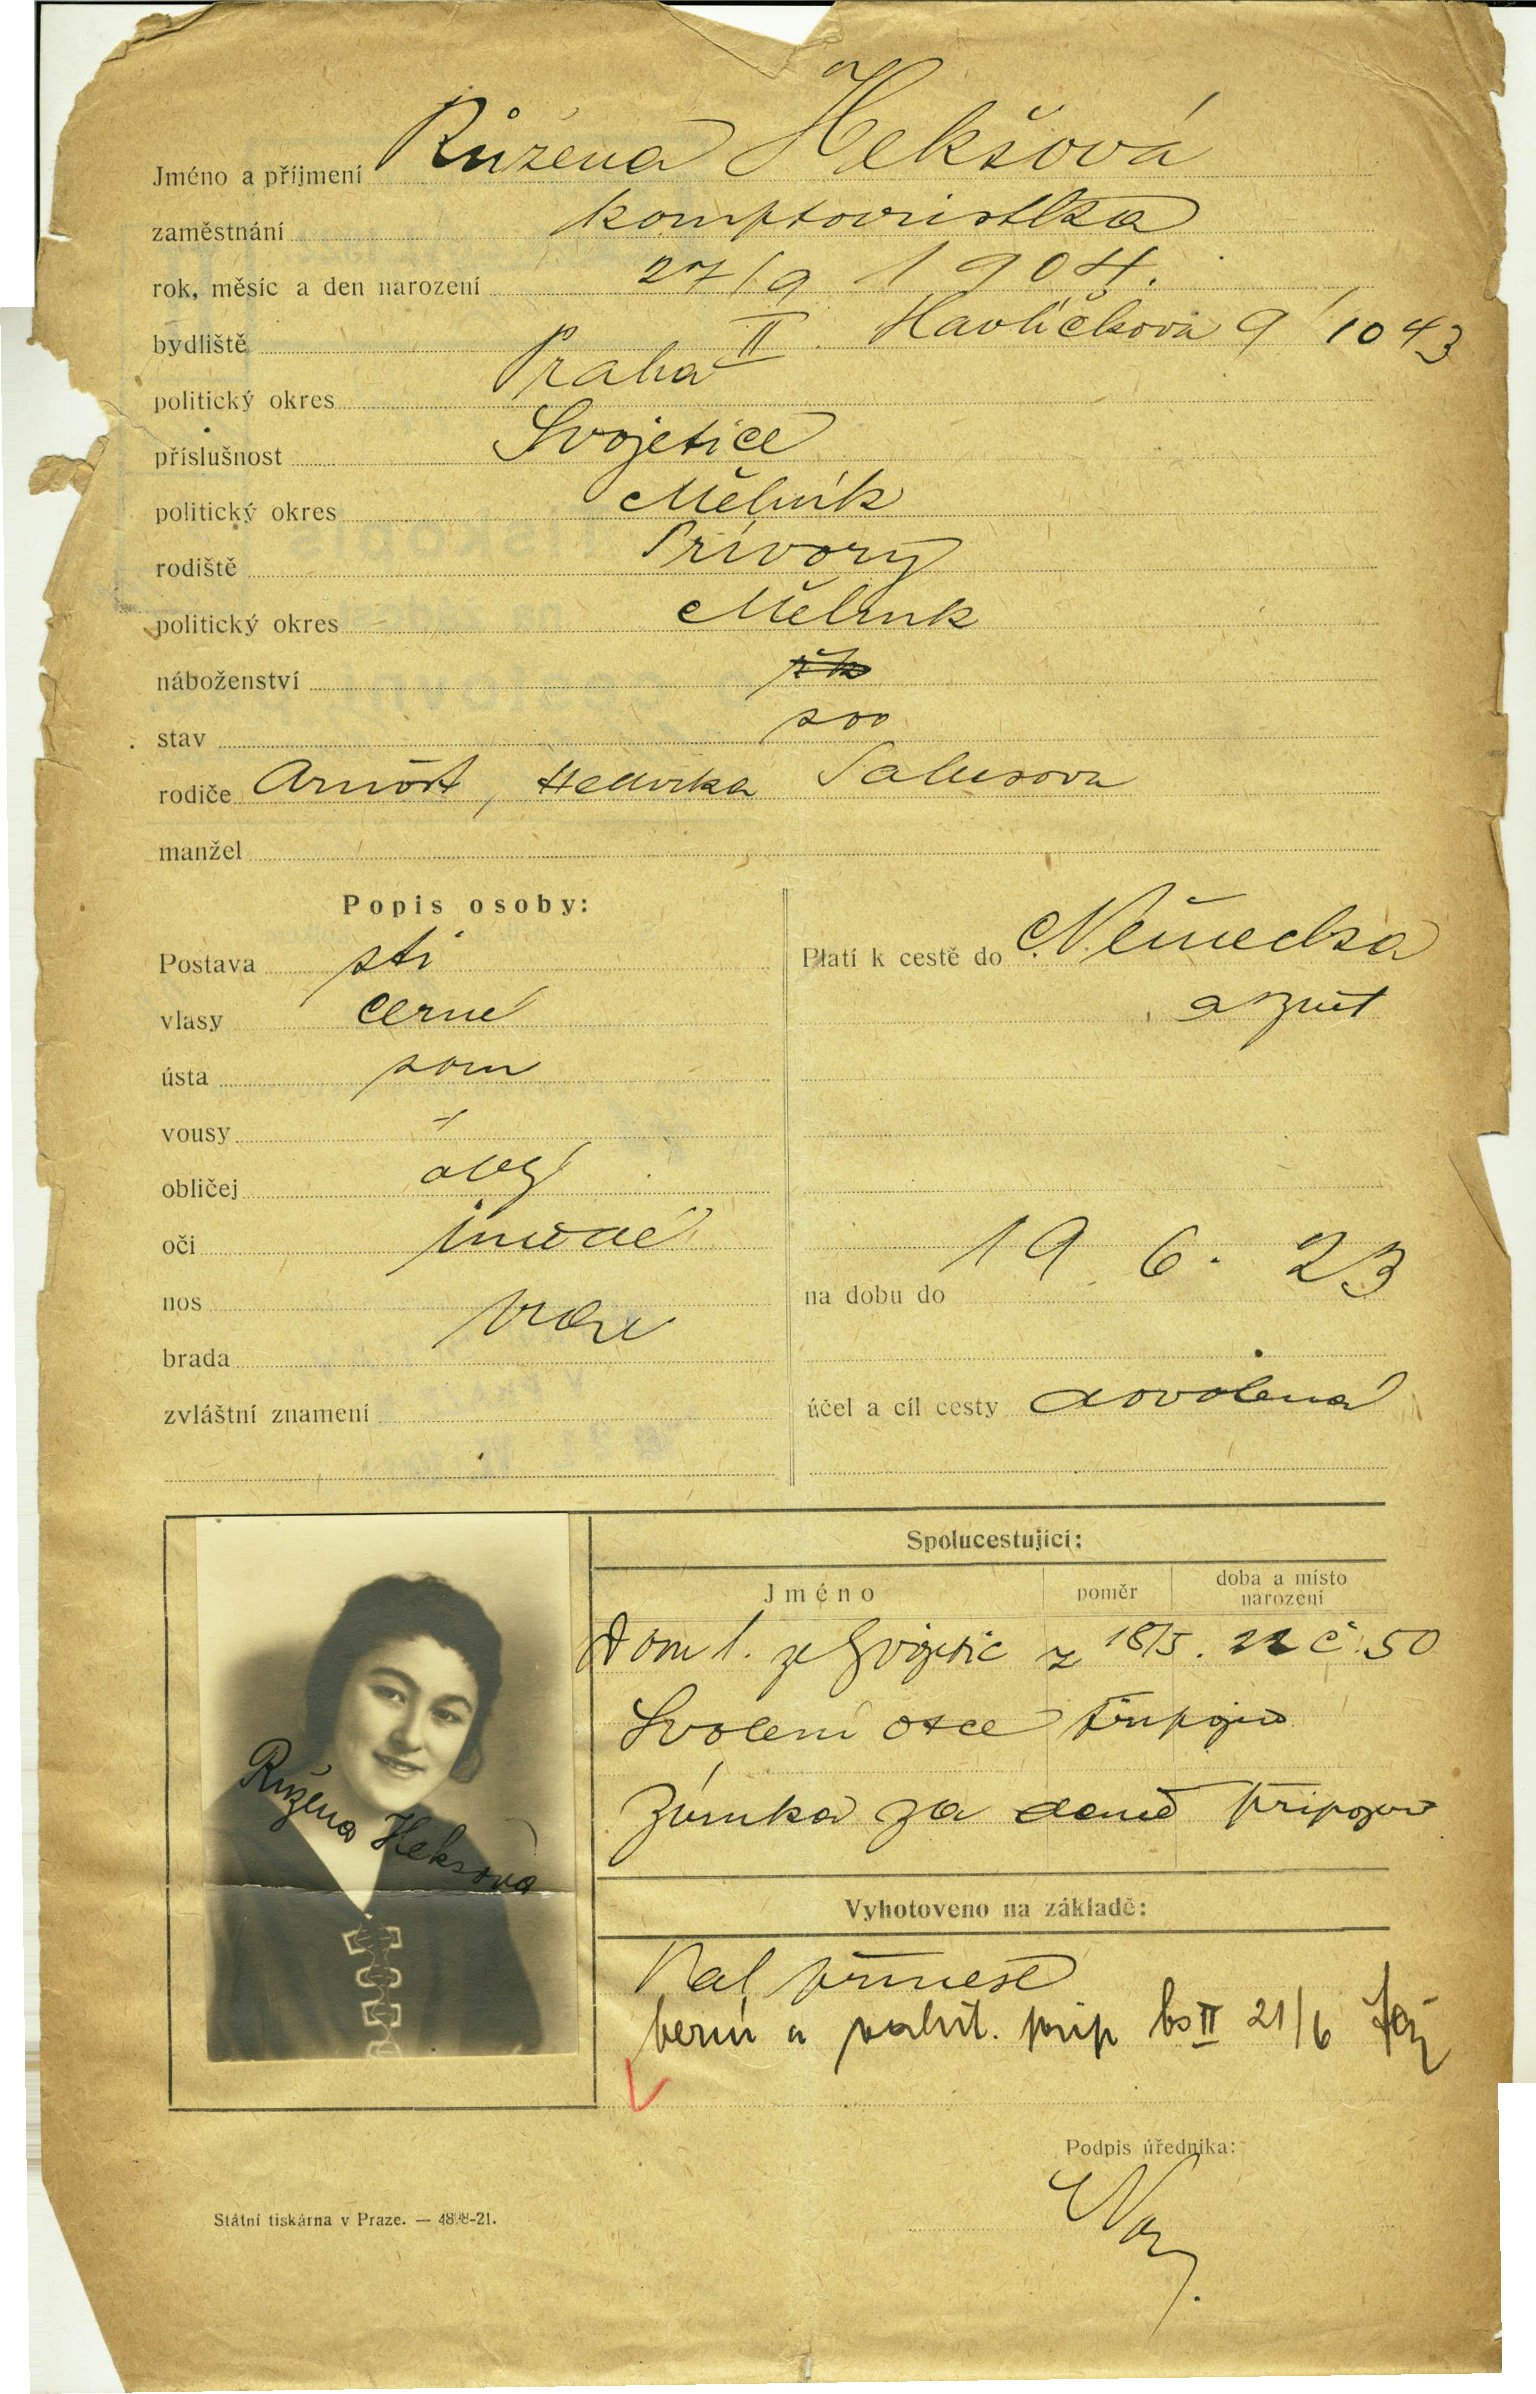 Jméno a příjmení Růžena Hekšová
zaměstnání komptoiristka
rok, měsíc a den narození 27/9 1904.
bydliště Praha II Havlíčkova 9 / 1043
politický okres
příslušnost Svojetice
politický okres Mělník
rodiště Přívory
politický okres Mělník
náboženství
stav svo
rodiče Arnošt, Hedvika Salusova
manžel
Popis osoby:
Postava stř
vlasy černé
ústa soum
vousy –
obličej
oči
nos
brada
zvláštní znamení
Platí k cestě do Německa
a zpět
na dobu do 19 6. 23
účel a cíl cesty dovolená
Růžena Heksova
Spolucestující:
Jméno poměr doba a místo
narození
Dom l. ze Svojetic z 18/5. 22 č. 50
Svolení otce připoj
Zámka za daně připojen
Vyhotoveno na základě:
Pas přinese
berní a přip bs II 21/6
Podpis úředníka:
Státní tiskárna v Praze. — 4898-21.